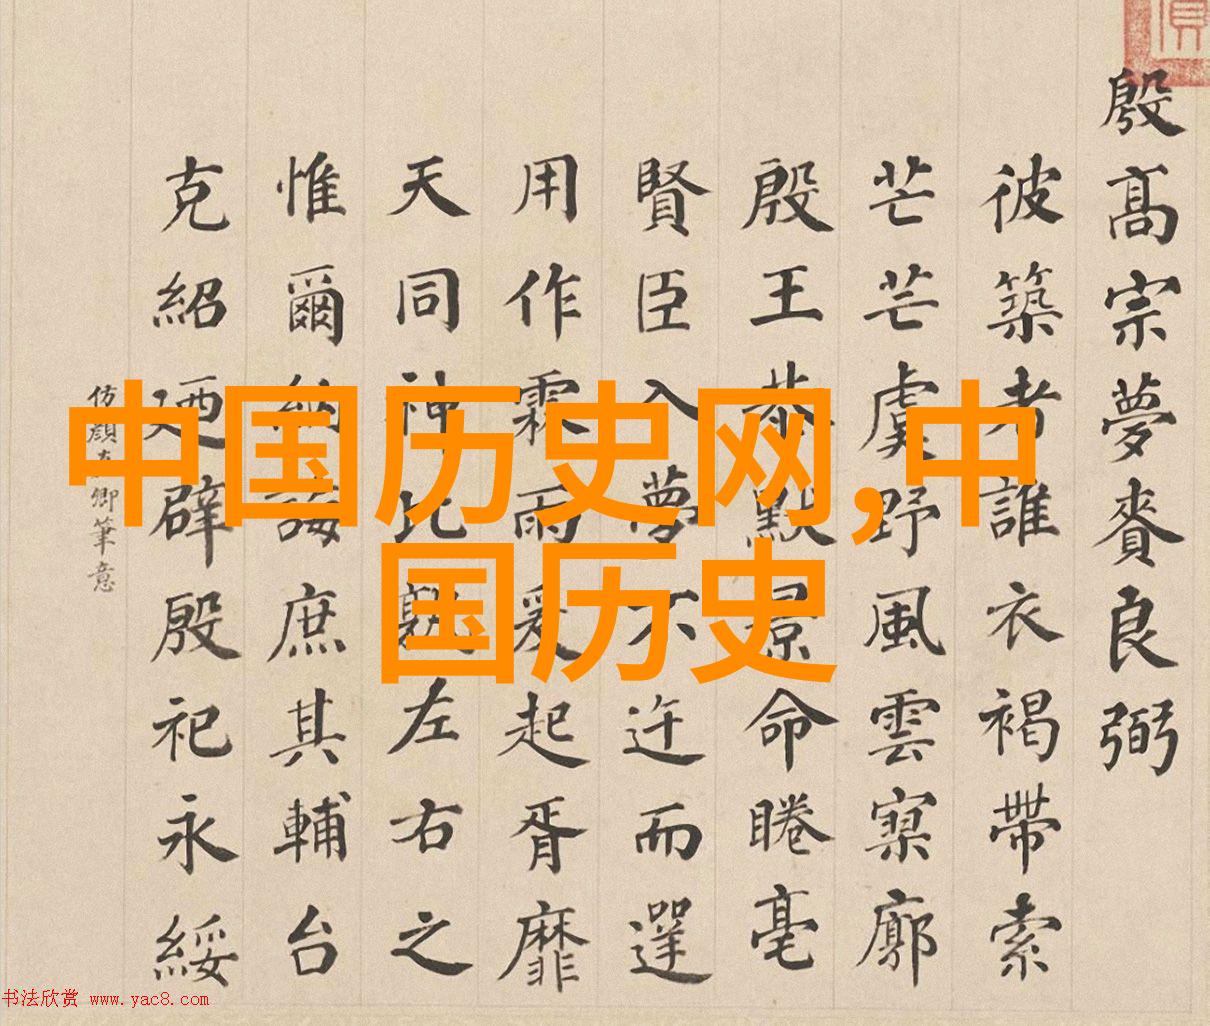 殷髙宗夢賚良弼
彼築者誰衣褐帶索
芒芒虞野風雲寥廓
殷王恭默景命睠亳
賢臣入夢不迕而遌
用作霖雨爰起胥靡
天同神比左右之
惟爾納誨庶其輔台
克紹廼辟殷祀永綏
仿顏真卿筆意
中国历史网,中
国历史
书法欣赏 www.yac8.com